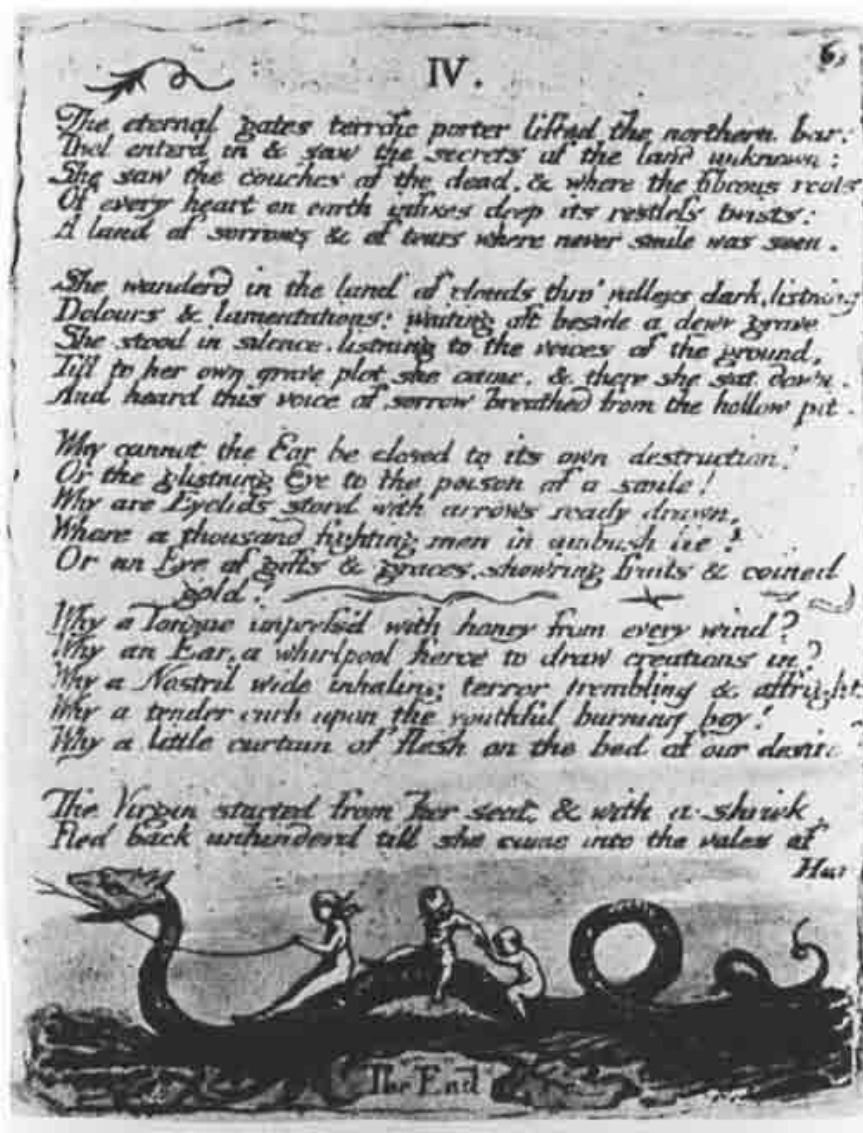 IV. 6
The eternal gates terrific porter lifted the northern bar:
Thel enterd in & saw the secrets of the land unknown:
She saw the couches of the dead, & where the fibrous roots
Of every heart on earth infixes deep its restless twists:
A land of sorrows & of tears where never smile was seen.
She wanderd in the land of clouds thro' valleys dark, listning
Dolours & lamentations: waiting oft beside a dewy grave
She stood in silence. listning to the voices of the ground,
Till to her own grave plot she came, & there she sat down.
And heard this voice of sorrow breathed from the hollow pit.
Why cannot the Ear be closed to its own destruction?
Or the glistning Eye to the poison of a smile!
Why are Eyelids stord with arrows ready drawn,
Where a thousand fighting men in ambush lie?
Or an Eye of gifts & graces, showring fruits & coined
gold?
Why a Tongue impress'd with honey from every wind?
Why an Ear, a whirlpool fierce to draw creations in?
Why a Nostril wide inhaling terror trembling & affright
Why a tender curb upon the youthful burning boy!
Why a little curtain of flesh on the bed of our desire?
The Virgin started from her seat, & with a shriek,
Fled back unhinderd till she came into the vales of
Har
The End